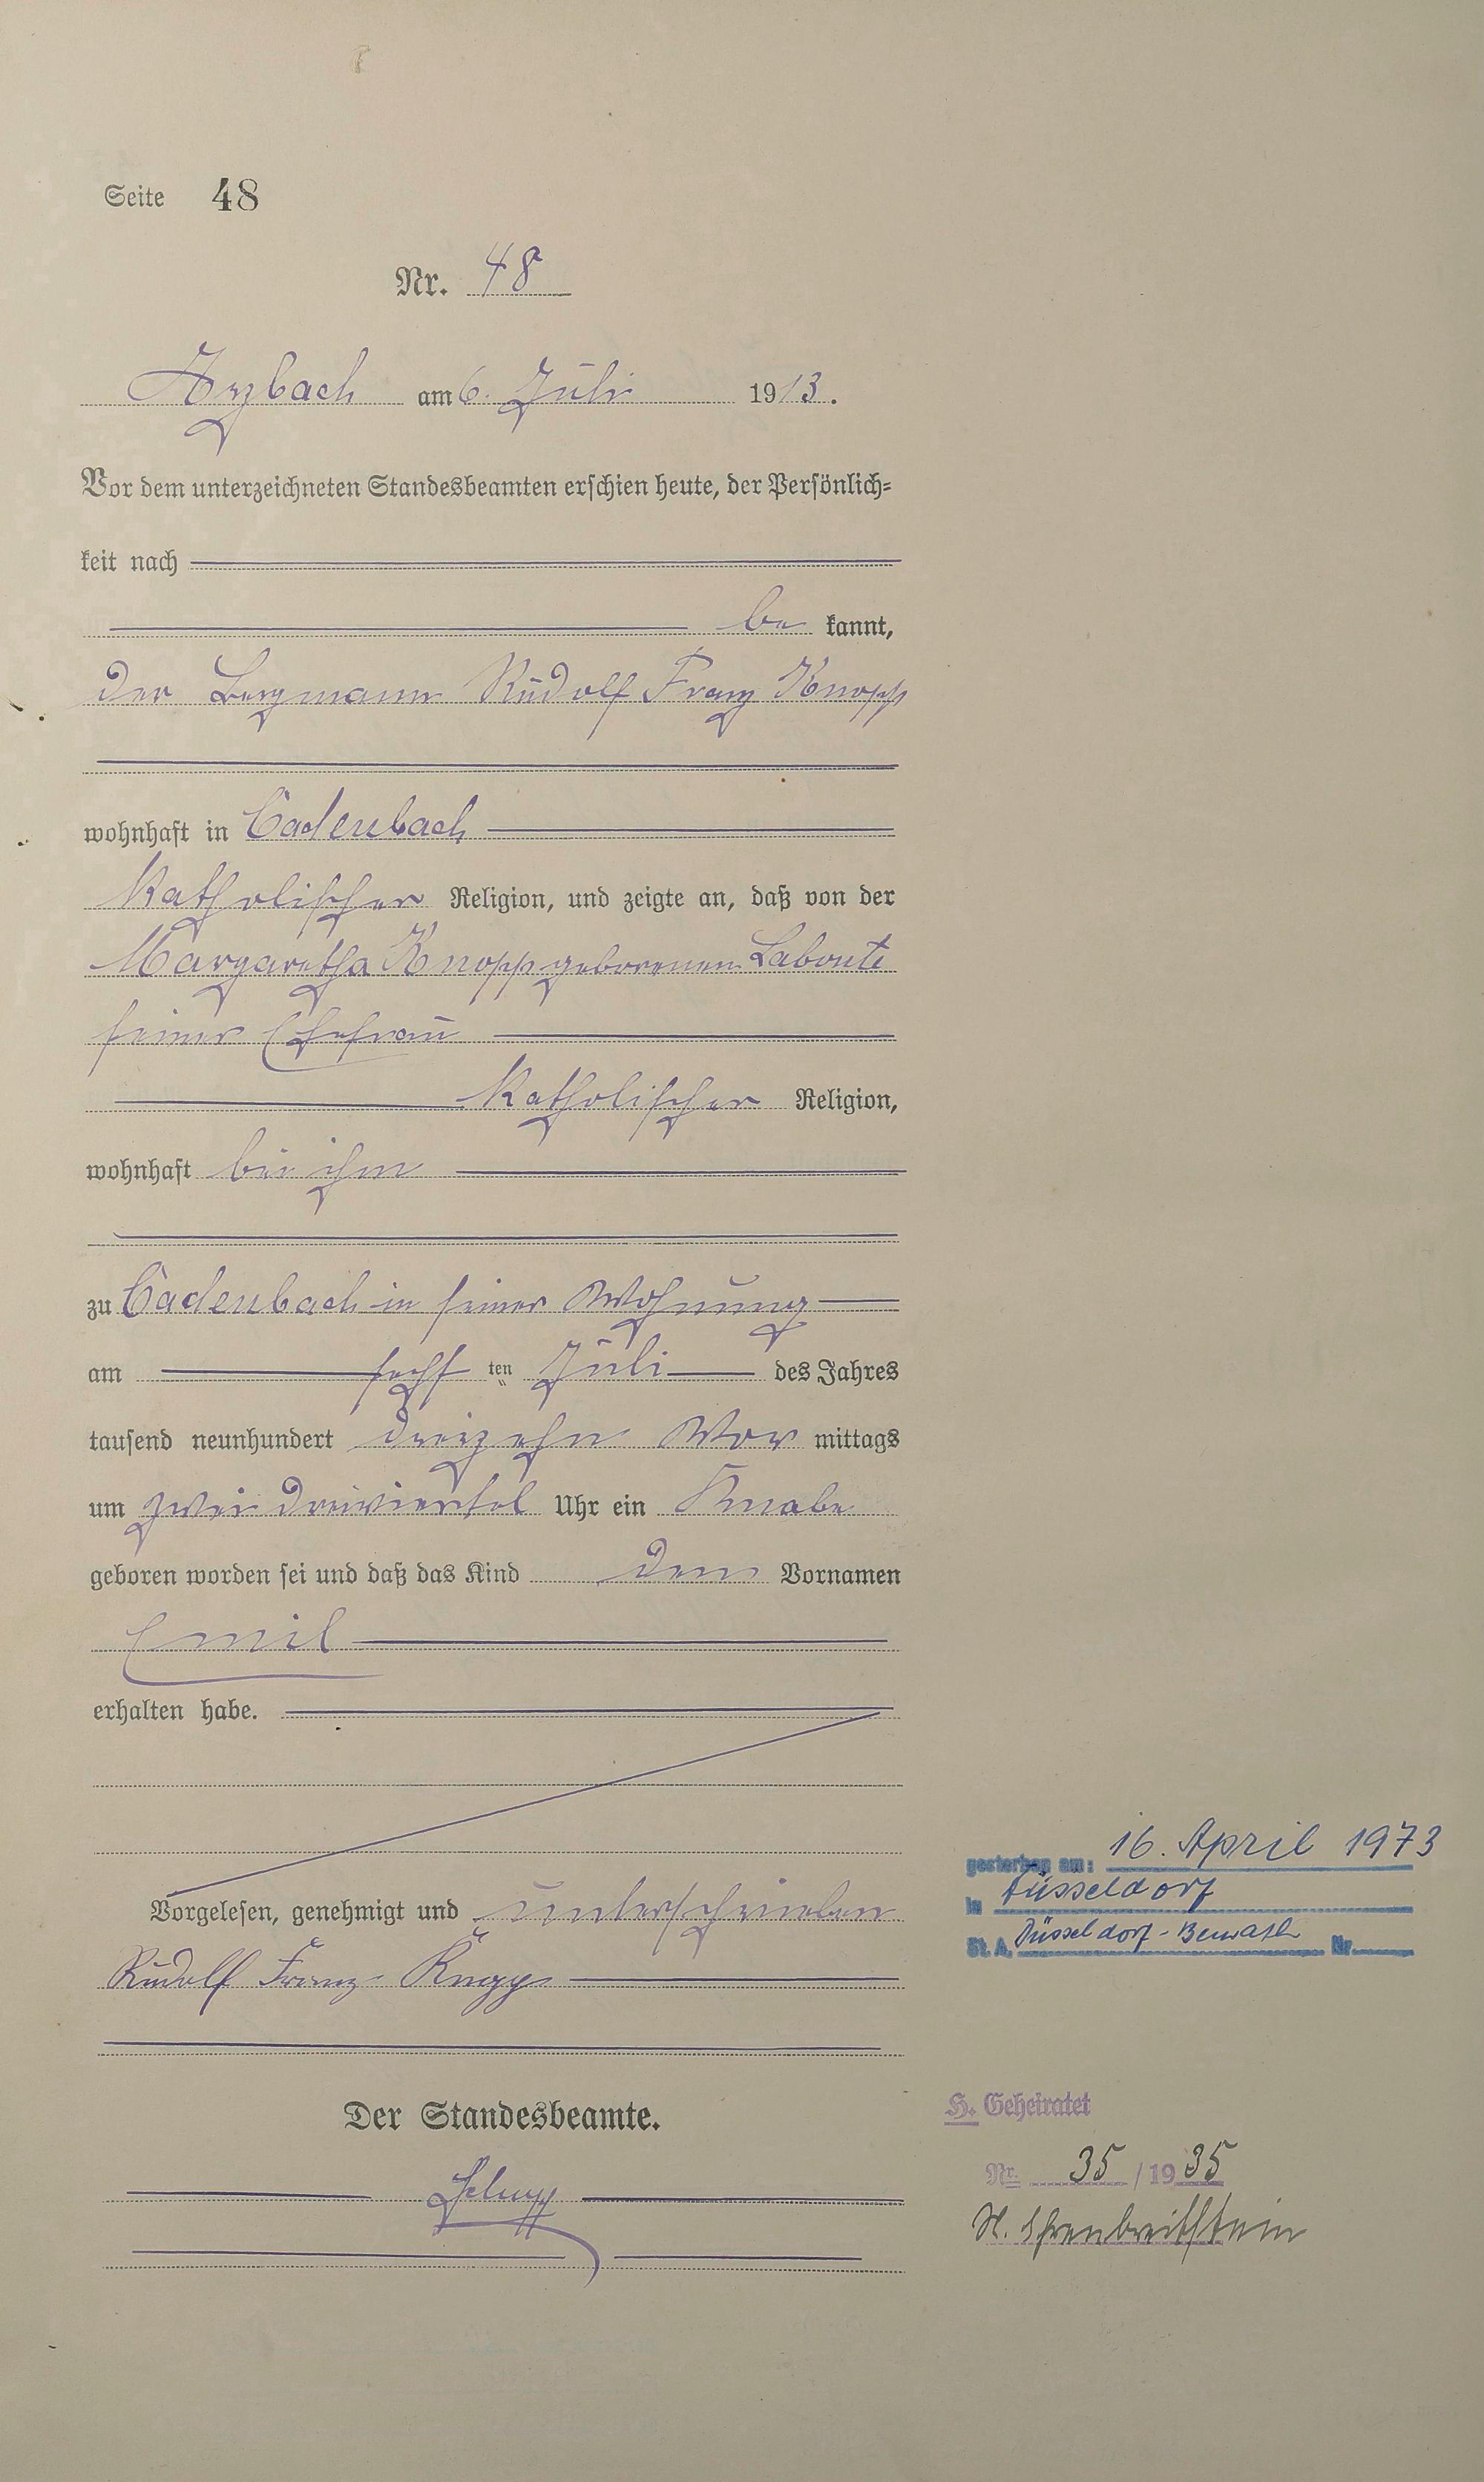 Seite 48
Nr. 48
Arzbach am 6. Juli 1913.
Vor dem unterzeichneten Standesbeamten erschien heute, der Persönlich-
keit nach
be kannt,
der Bergmann Rudolf Franz Knopp
wohnhaft in Cadenbach
katholischer Religion, und zeigte an, daß von der
Margaretha Knopp geborenen Labonte
seiner Ehefrau
katholischer Religion,
wohnhaft bei ihm
zu Cadenbach in seiner Wohnung
am sechs ten Juli des Jahres
tausend neunhundert dreizehn Vor mittags
um zwei dreiviertel Uhr ein Knabe
geboren worden sei und daß das Kind den Vornamen
Emil
erhalten habe.
Vorgelesen, genehmigt und unterschrieben
Rudolf Franz Knopp
Der Standesbeamte.
gestorben am: 16. April 1973
in Düsseldorf
St. A. Düsseldorf-Benrath Nr.
H. Geheiratet
Nr. 35/1935
St. Ehrenbreitstein